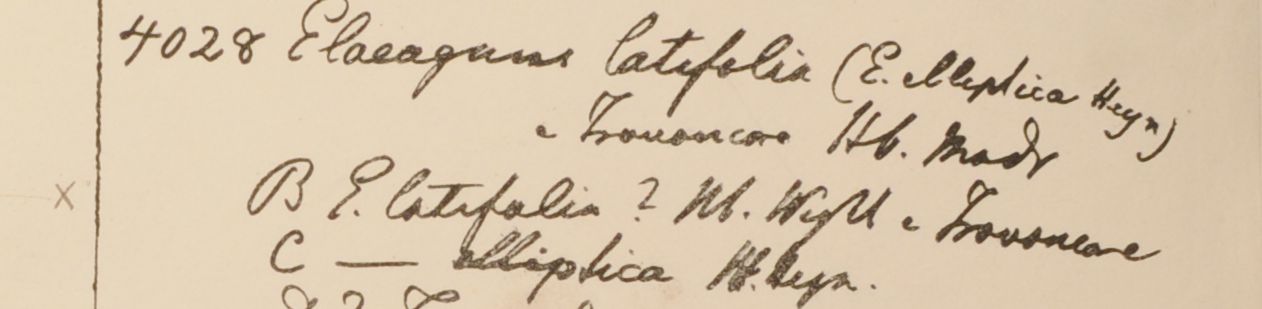 4028 Elaeagnus latifolia (E. elliptica Heyn)
e Travancore Hb. Madr
B E. latifolia? Hb. Wight e Travancore
C — elliptica H. Heyn.